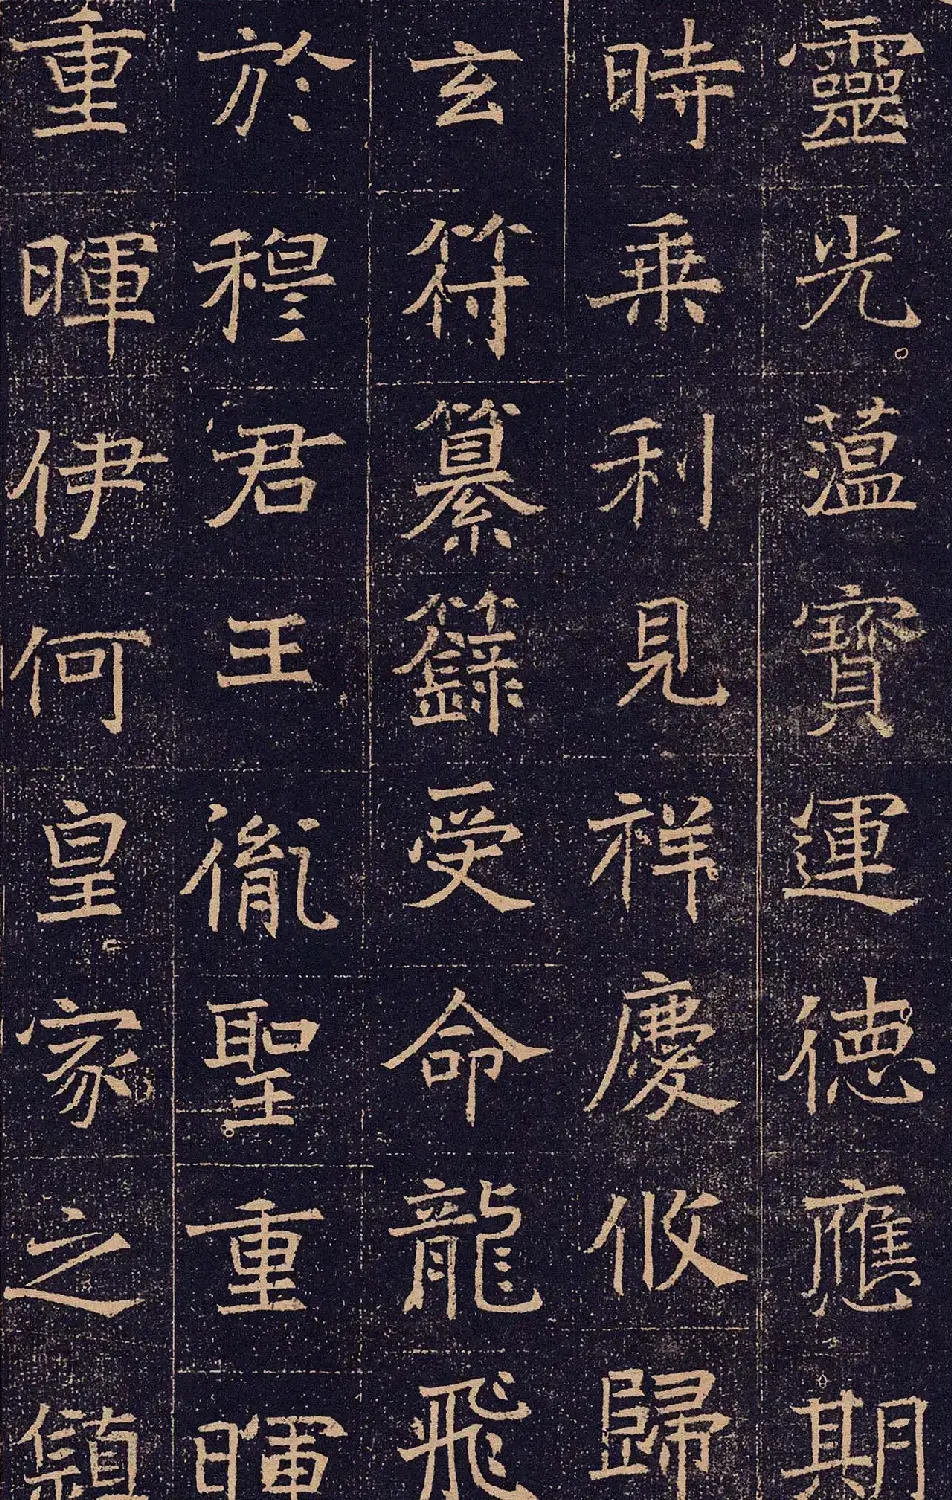 靈光蕰寶運德應期
時乗利見祥慶攸歸
玄符纂籙受命龍飛
於穆君王胤聖重暉
重暉伊何皇家之顗